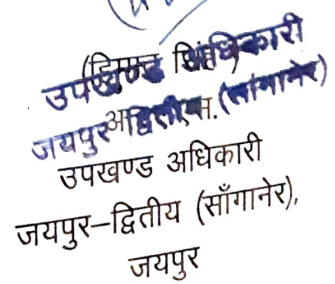 उपखण्ड अधिकारी
जयपुर द्वितीय (सांगानेर)
उपखण्ड अधिकारी
जयपुर–द्वितीय (साँगानेर),
जयपुर